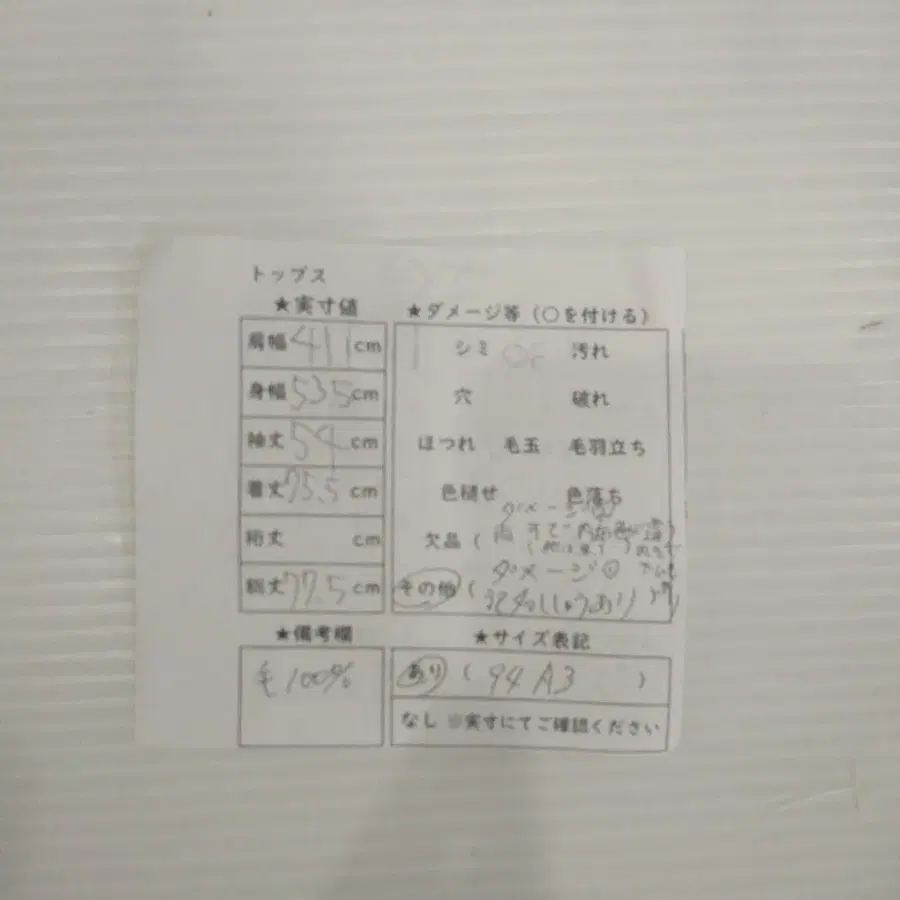 トップス
★実寸値
肩幅 41 cm
身幅 53.5 cm
袖丈 54 cm
着丈 75.5 cm
裄丈 cm
総丈 77.5 cm
★備考欄
毛100%
★ダメージ等（○を付ける）
シミ 汚れ
穴 破れ
ほつれ 毛玉 毛羽立ち
色褪せ 色落ち
ダメージ②
欠品 (
ダメージ①
その他 ( ししゅうあり )
★サイズ表記
あり ( 94 A3 )
なし ※実寸にてご確認ください